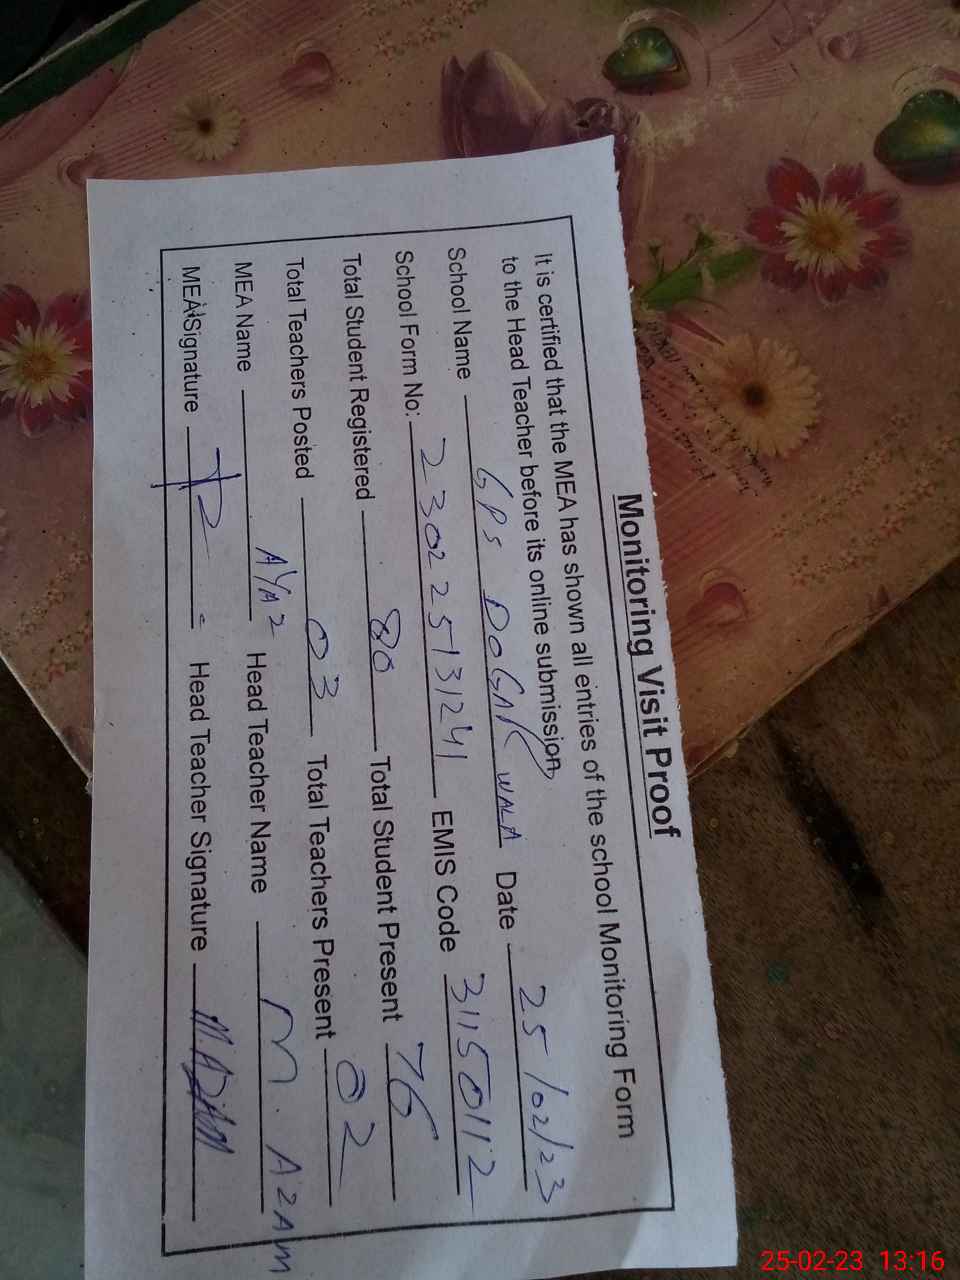 Monitoring Visit Proof
It is certified that the MEA has shown all entries of the school Monitoring Form
to the Head Teacher before its online submission,
School Name GPS DOGAR WALA Date 25/02/23
School Form No: 230225131241 EMIS Code 31150112
Total Student Registered 80 Total Student Present 76
Total Teachers Posted 03 Total Teachers Present 02
MEA Name AYAZ Head Teacher Name M. AZAM
MEA Signature Head Teacher Signature
25-02-23 13:16